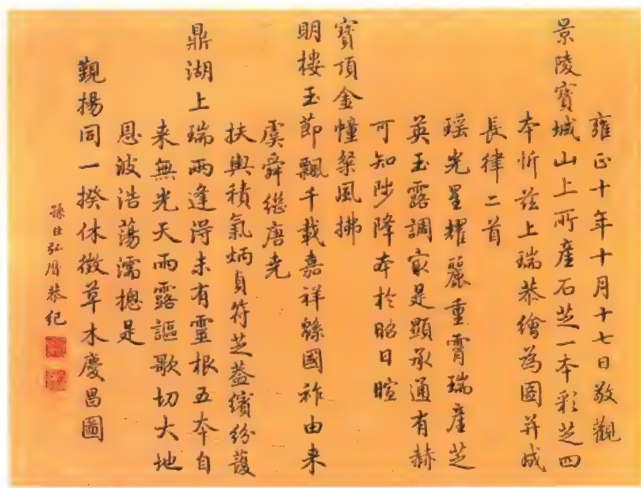 雍正十年十月十七日敬觀
景陵寶城山上所產石芝一本彩芝四
本忻茲上瑞恭繪為圖并成
長律二首
瑤光星耀麗重霄瑞產芝
英玉露調家是顯承通有赫
可知陟降本於昭日暄
寶頂金幢粲風拂
明樓玉節飄千載嘉祥綿國祚由来
虞舜繼唐堯
扶輿積氣炳貞符芝蓋繽紛護
鼎湖上瑞兩逢得未有靈根五本自
来無光天雨露謳歌切大地
恩波浩蕩濡摠是
覲揚同一揆休徵草木慶昌圖
孫臣弘曆恭紀